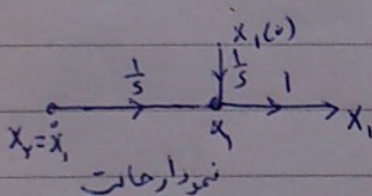 x₁(0)
1/s 1/s 1
x₂=ẋ₁ x₁ X₁
نمودار حالت